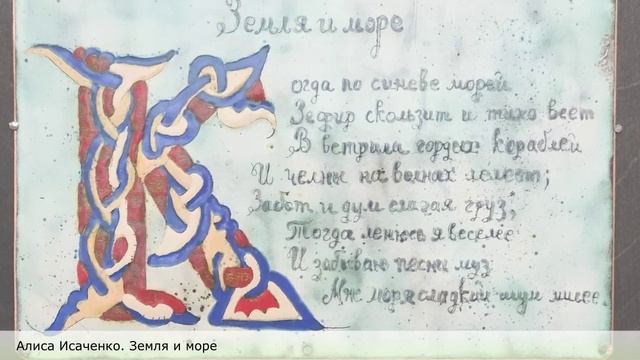 Земля и море
К
огда по синеве морей
Зефир скользит и тихо веет
В ветрила гордых кораблей
И челны на волнах лелеет;
Забот и дум слагая груз,
Тогда ленюсь я веселее
И забываю песни муз
Мж моря сладкий шум милее
Алиса Исаченко. Земля и море